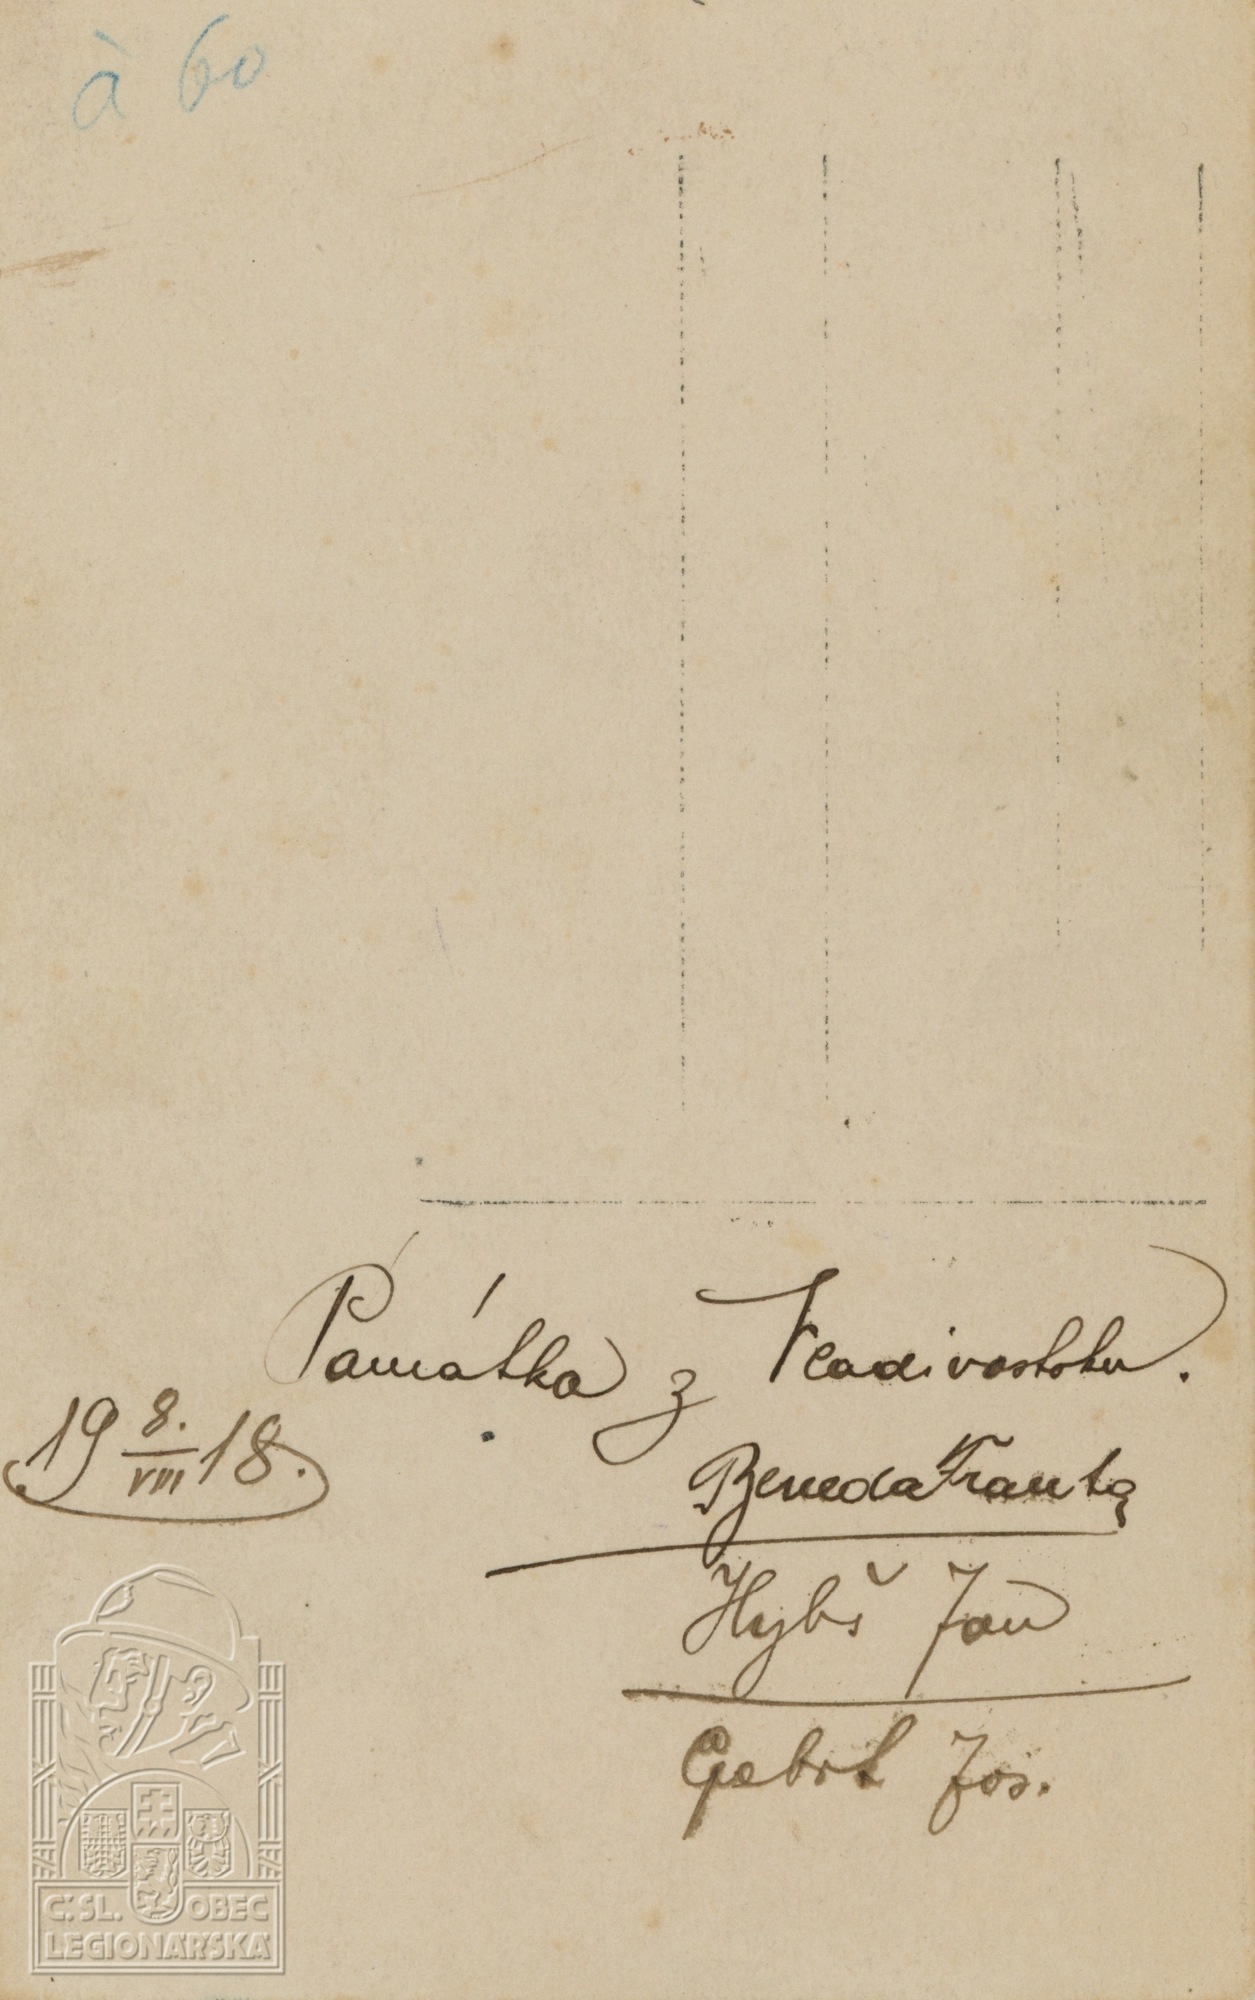 à 60
Památka z Vladivostoku.
19 8./VIII 18.
Beneda Franta
Hybš Jan
Gebrt Jos.
Č. SL. OBEC
LEGIONÁŘSKÁ